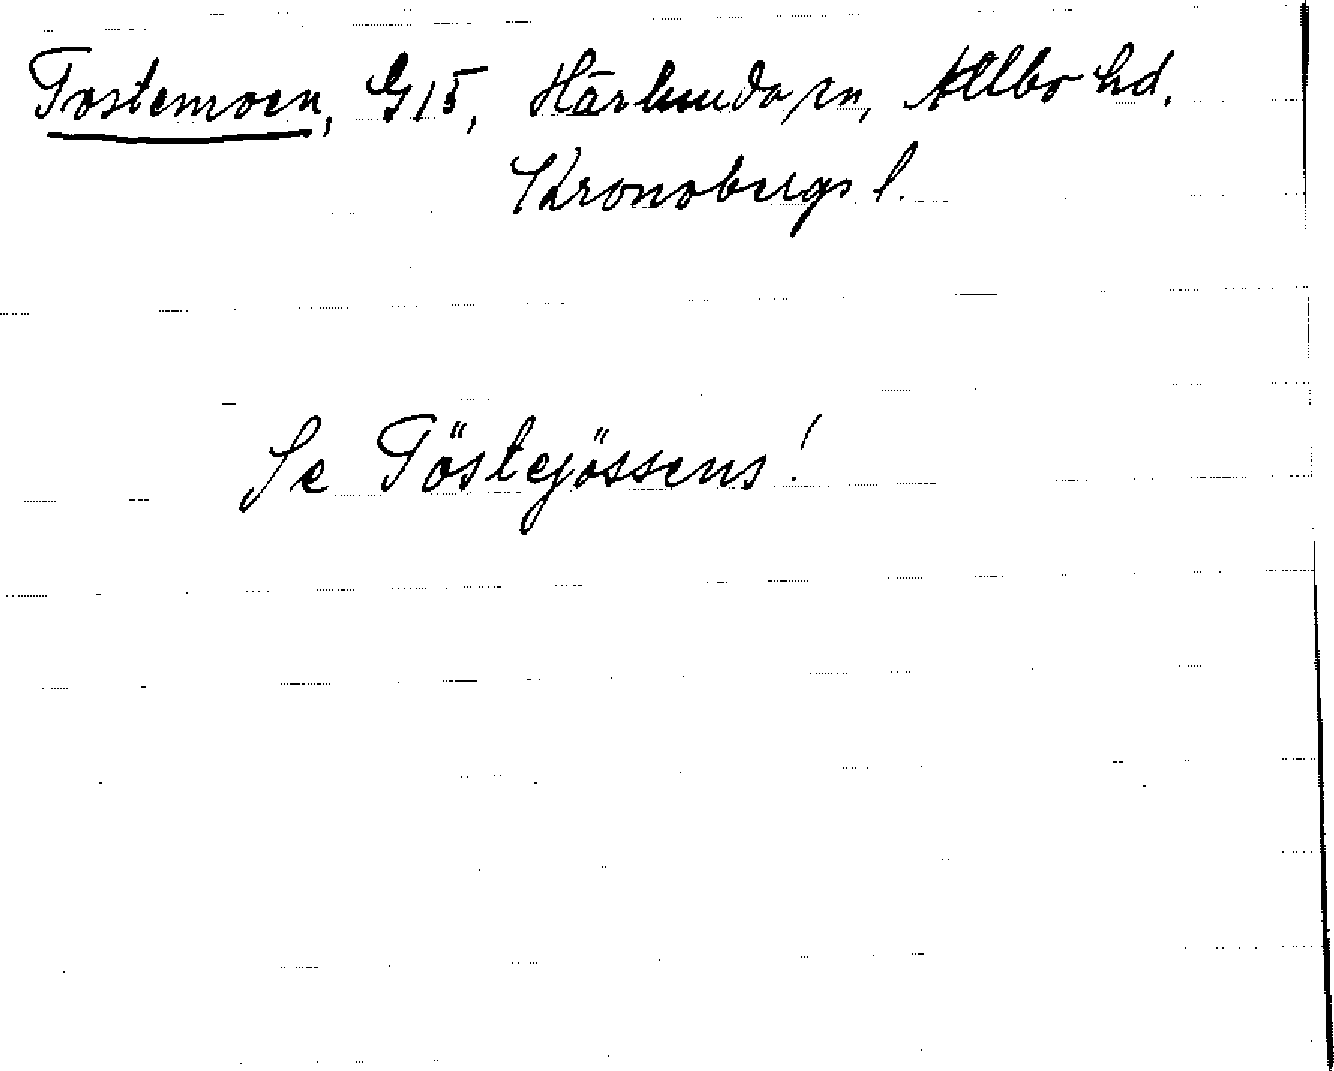 Tostemoen, G 15, Härlunda sn, Allbo hd.
Kronobergs l.
Se Töstejössens!